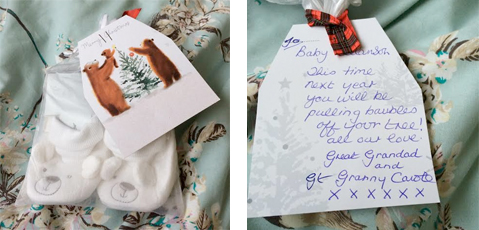 To
Baby
This time
next year
you will be
pulling baubles
off your tree!
all our love
Great Grandad
and
Gt Granny
x x x x x x